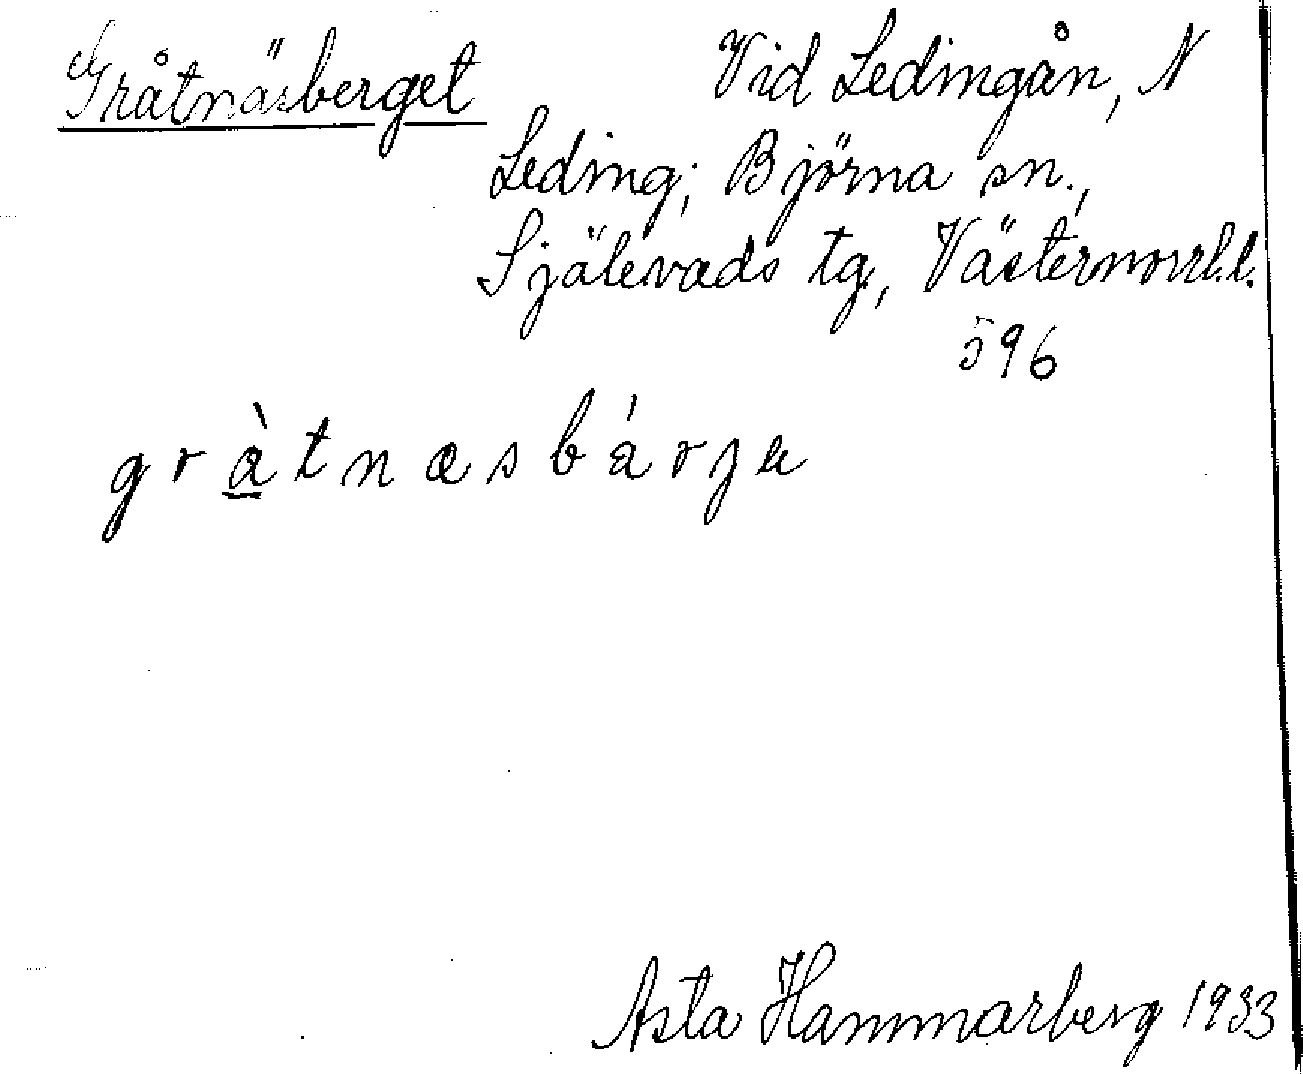 Gråtnäsberget
Vid Ledingån, N
Leding; Björna sn.,
Själevads tg, Västernorrl.l.
596
gràtnæsbárjɐ
Asta Hammarberg 1933